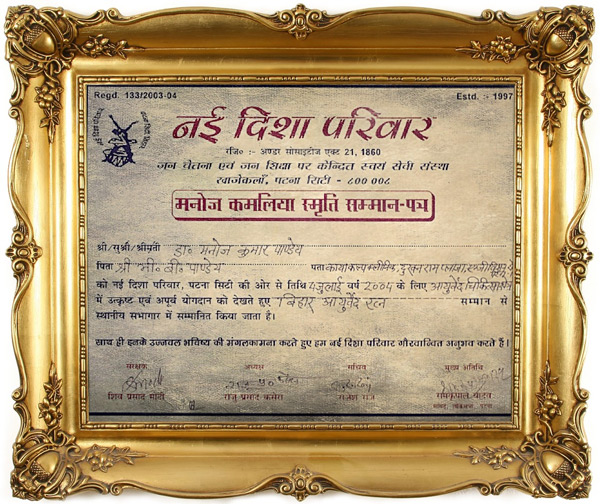 Regd. 133/2003-04 Estd. :- 1997
नई दिशा परिवार
रजि० :- अण्डर सोसाइटीज एक्ट 21, 1860
जन चेतना एवं जन शिक्षा पर केन्दित स्वयं सेवी संस्था
खाजेकलाँ, पटना सिटी - ८०० ००८
मनोज कमलिया स्मृति सम्मान-पत्र
श्री/सुश्री/श्रीमती डा० मनोज कुमार पाण्डेय
पिता श्री भी० बी० पाण्डेय पता कायाकल्प क्लीनिक,
को नई दिशा परिवार, पटना सिटी की ओर से तिथि 4 जुलाई वर्ष 2004 के लिए आयुर्वेद चिकित्सा क्षेत्र
में उत्कृष्ट एवं अपूर्व योगदान को देखते हुए बिहार आयुर्वेद रत्न सम्मान से
स्थानीय सभागार में सम्मानित किया जाता है।
साथ ही इनके उज्जवल भविष्य की मंगलकामना करते हुए हम नई दिशा परिवार गौरवान्वित अनुभव करते हैं।
संरक्षक अध्यक्ष सचिव मुख्य अतिथि
शिव प्रसाद मोदी राजु प्रसाद कसेरा राजेश राज रामकृपाल यादव